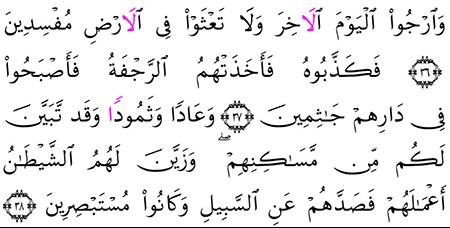 وَٱرْجُوا۟ ٱلْيَوْمَ ٱلَاخِرَ وَلَا تَعْثَوْا۟ فِى ٱلَارْضِ مُفْسِدِينَ
۝٣٦ فَكَذَّبُوهُ فَأَخَذَتْهُمُ ٱلرَّجْفَةُ فَأَصْبَحُوا۟
فِى دَارِهِمْ جَـٰثِمِينَ ۝٣٧ وَعَادًا وَثَمُودًا وَقَد تَّبَيَّنَ
لَكُم مِّن مَّسَـٰكِنِهِمْ ۖ وَزَيَّنَ لَهُمُ ٱلشَّيْطَـٰنُ
أَعْمَـٰلَهُمْ فَصَدَّهُمْ عَنِ ٱلسَّبِيلِ وَكَانُوا۟ مُسْتَبْصِرِينَ ۝٣٨